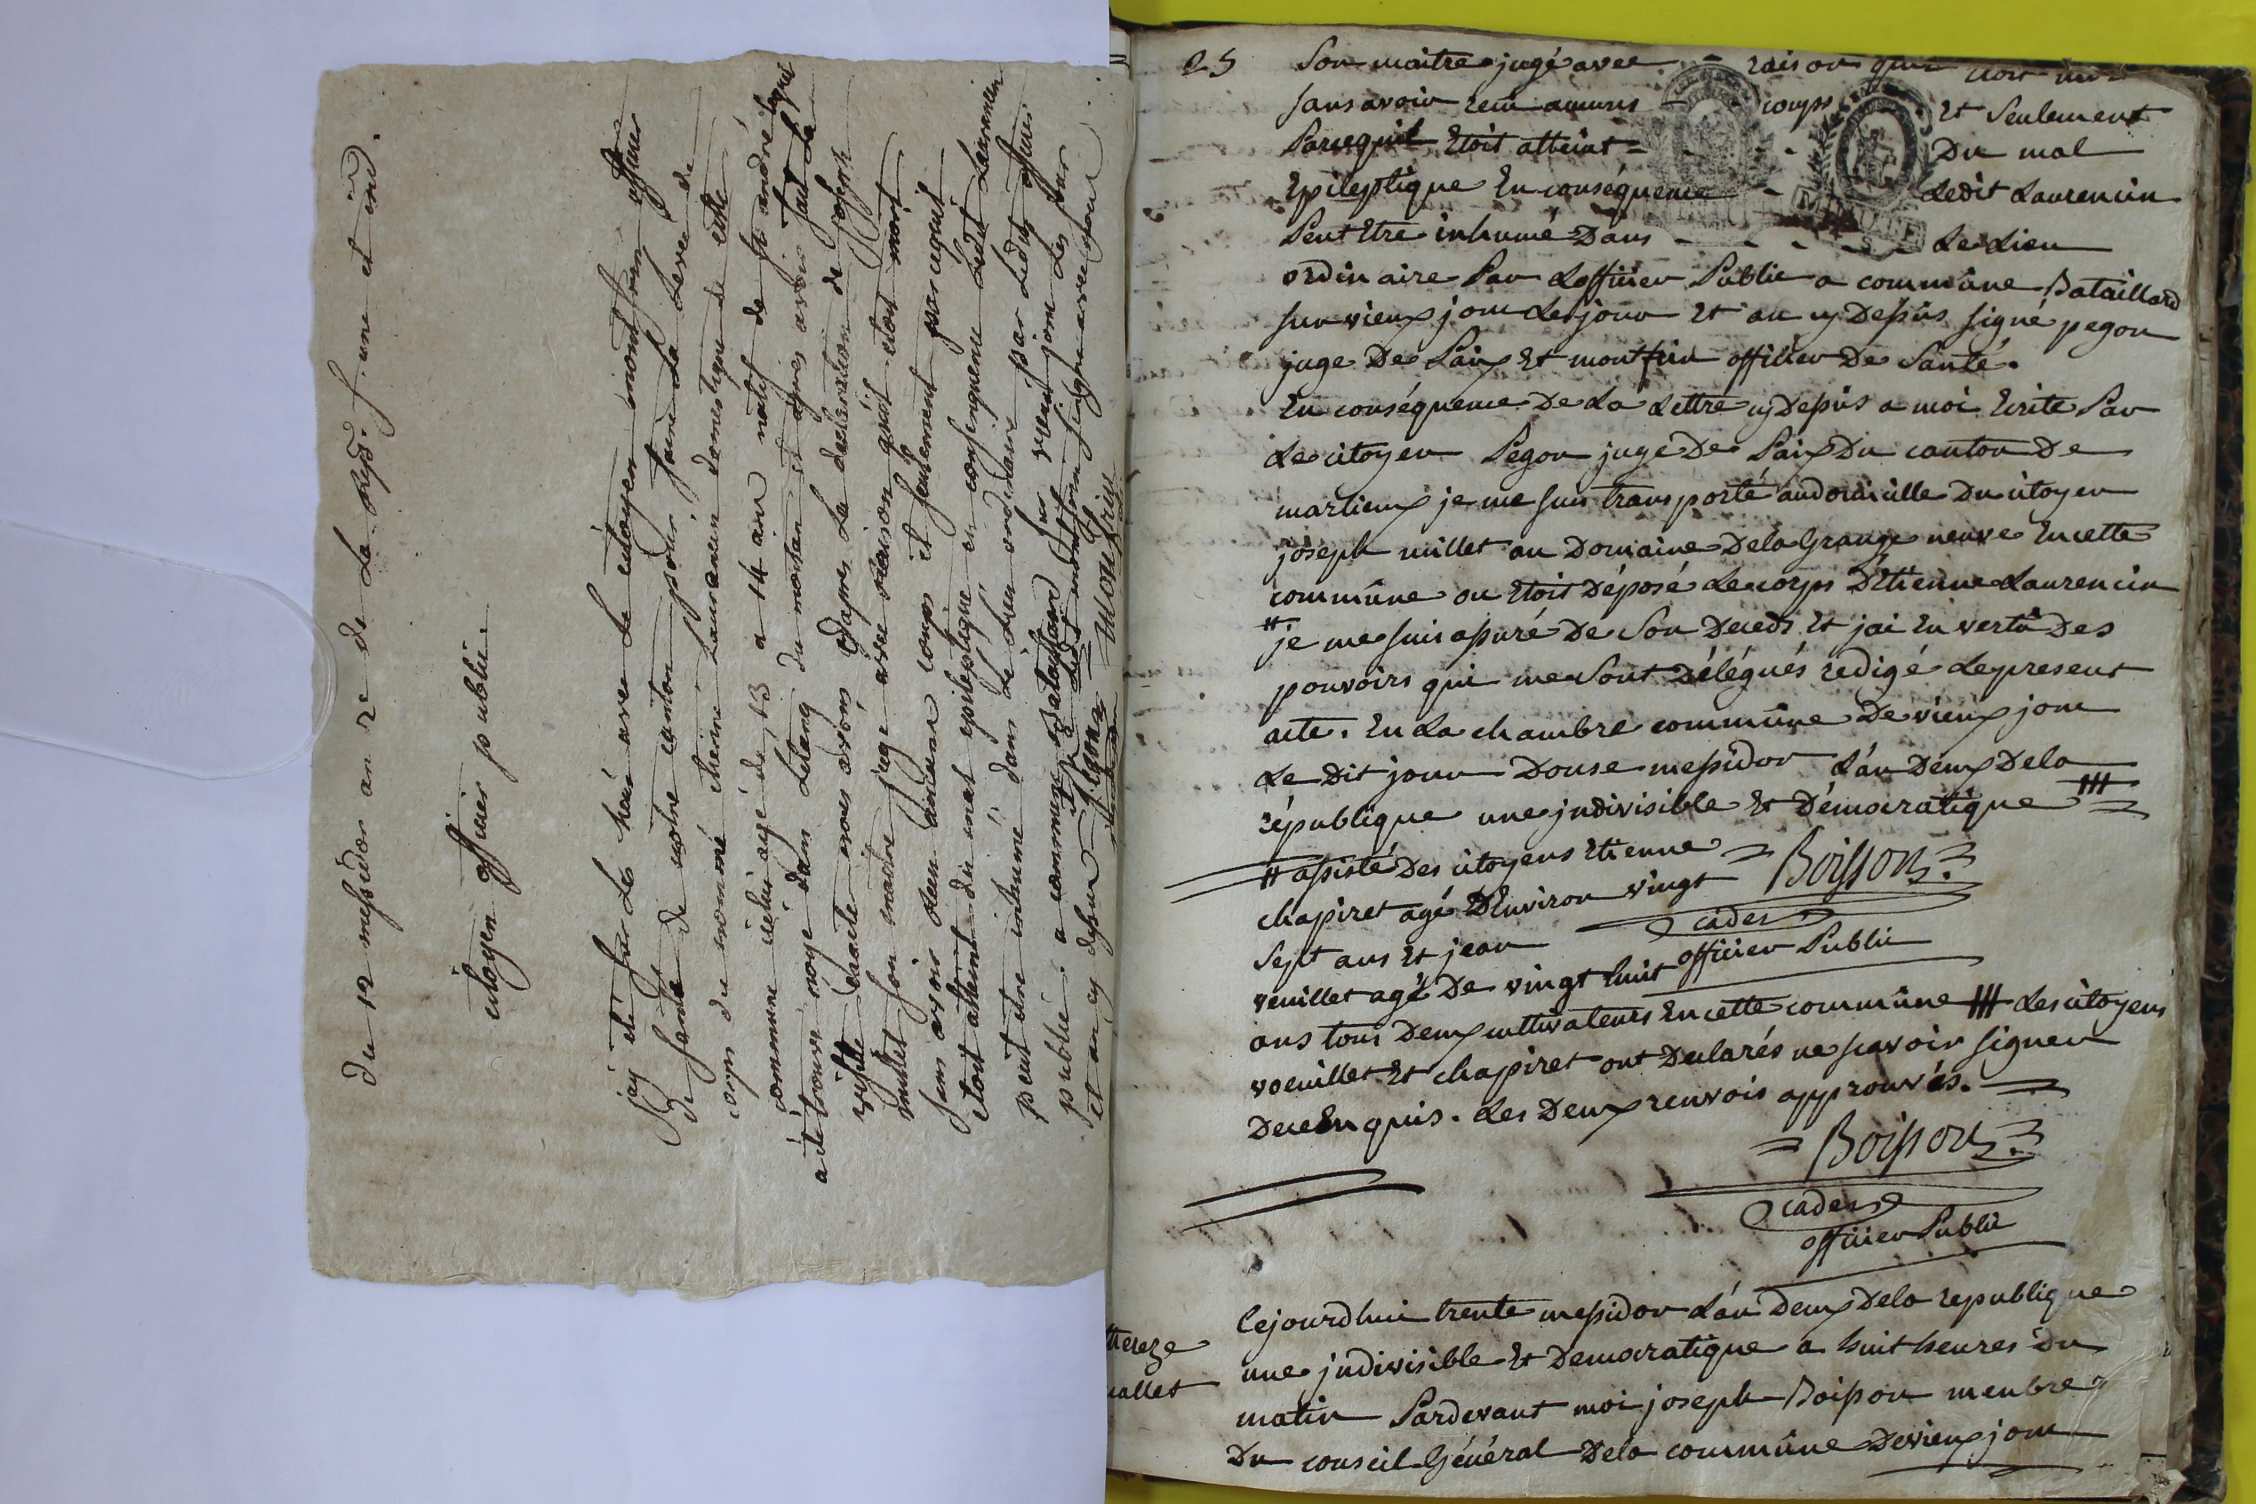 Du 12 messidor an 2e de la Repd. f. une et ind.
citoyen officier publie.
j'ay été sur les heür avec le citoyen montfrin officier
de santé de notre canton pour faire la levée du
corps du nommé etienne Laurancin domestique de cette
commune icelui agé de 13 a 14 ans natif de st andré lequel
a été trouvé noyé dans Létang du mostan et apres avoir fait la
visitte exacte nous avons Dapres la déclaration de joseph
millet son maitre juge avec raison quil etoit mort
sans avoir reçu aucuns coups et seulement parcequil
etoit attient du mal epileptique en consequence ledit Laurencin
peut etre inhumé dans le lieu ordinaire par ledit officier
publie. a commune Bataillard sur vieux jonc les jour
et an cy dessus ledit montfrin signe avec nous
Pegon
montfrin
25
Son maitre jugé avec raison quil etoit mort
sans avoir recu aucuns coups et seulement
Parcequil Etoit atteint Du mal
Epileptique En conséquence Ledit Laurencin
Peut Etre inhumé Dans Le Lieu
ordinaire Par Lofficier Public a commûne Bataillard
sur vieux jonc Les jour Et an cy Dessus signé pegon
juge De Paix Et montfrin officier De Santé.
En conséquence De La Lettre cy Dessus a moi Ecrite Par
Le citoyen Pegon juge De Paix Du canton De
marlieux je me suis transporté audomicille Du citoyen
joseph millet au Domaine Dela Grange neuve En cette
commûne ou Etoit Déposé Le corps D'Etienne Laurencin
# je me suis assuré De Son Deceds Et jai En vertû Des
pouvoirs qui me Sont Délégués redigé Le present
acte. En La chambre commûne De vieux jonc
Le Dit jour Douse messidor L'an Deux Dela
république une indivisible Et Démocratique #
# assisté Des citoyens Etienne
chapiret agé D'Environ vingt
Sept ans Et jean
veuillet agé De vingt huit
ans tous Deux cultivateurs En cette commûne # Les citoyens
voeuillet Et chapiret ont Declarés ne scavoir signer
De ce Enquis. Les Deux renvois approuvés.
Boisson
cadet
officier Public
Boisson
cadet
officier Public
therese
vallet
Cejourdhui trente messidor L'an Deux Dela republique
une indivisible Et Democratique a huit heures Du
matin Pardevant moi joseph Boisson menbre
Du conseil Général Dela commûne De vieux jonc